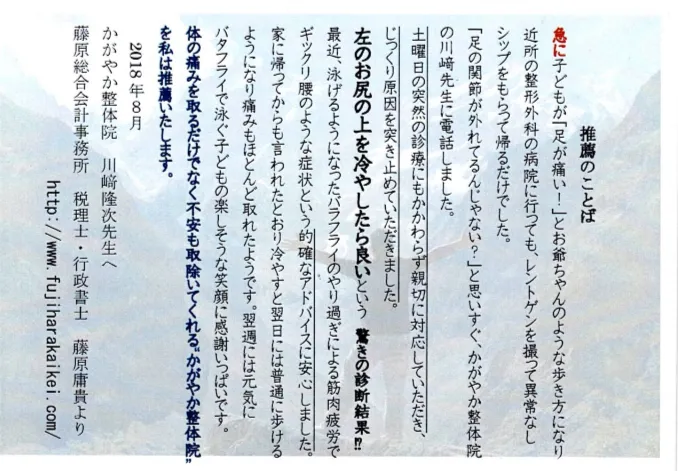 推薦のことば
急に子どもが「足が痛い！」とお爺ちゃんのような歩き方になり
近所の整形外科の病院に行っても、レントゲンを撮って異常なし
シップをもらって帰るだけでした。
「足の関節が外れてるんじゃない？」と思いすぐ、かがやか整体院
の川﨑先生に電話しました。
土曜日の突然の診療にもかかわらず親切に対応していただき、
じっくり原因を突き止めていただきました。
左のお尻の上を冷やしたら良いという 驚きの診断結果⁉
最近、泳げるようになったバラフライのやり過ぎによる筋肉疲労で
ギックリ腰のような症状という的確なアドバイスに安心しました。
家に帰ってからも言われたとおり冷やすと翌日には普通に歩ける
ようになり痛みもほとんど取れたようです。翌週には元気に
バタフライで泳ぐ子どもの楽しそうな笑顔に感謝いっぱいです。
体の痛みを取るだけでなく不安も取除いてくれる“かがやか整体院”
を私は推薦いたします。
2018年8月
かがやか整体院 川﨑隆次先生へ
藤原総合会計事務所 税理士・行政書士 藤原庸貴より
http://www.fujiharakaikei.com/